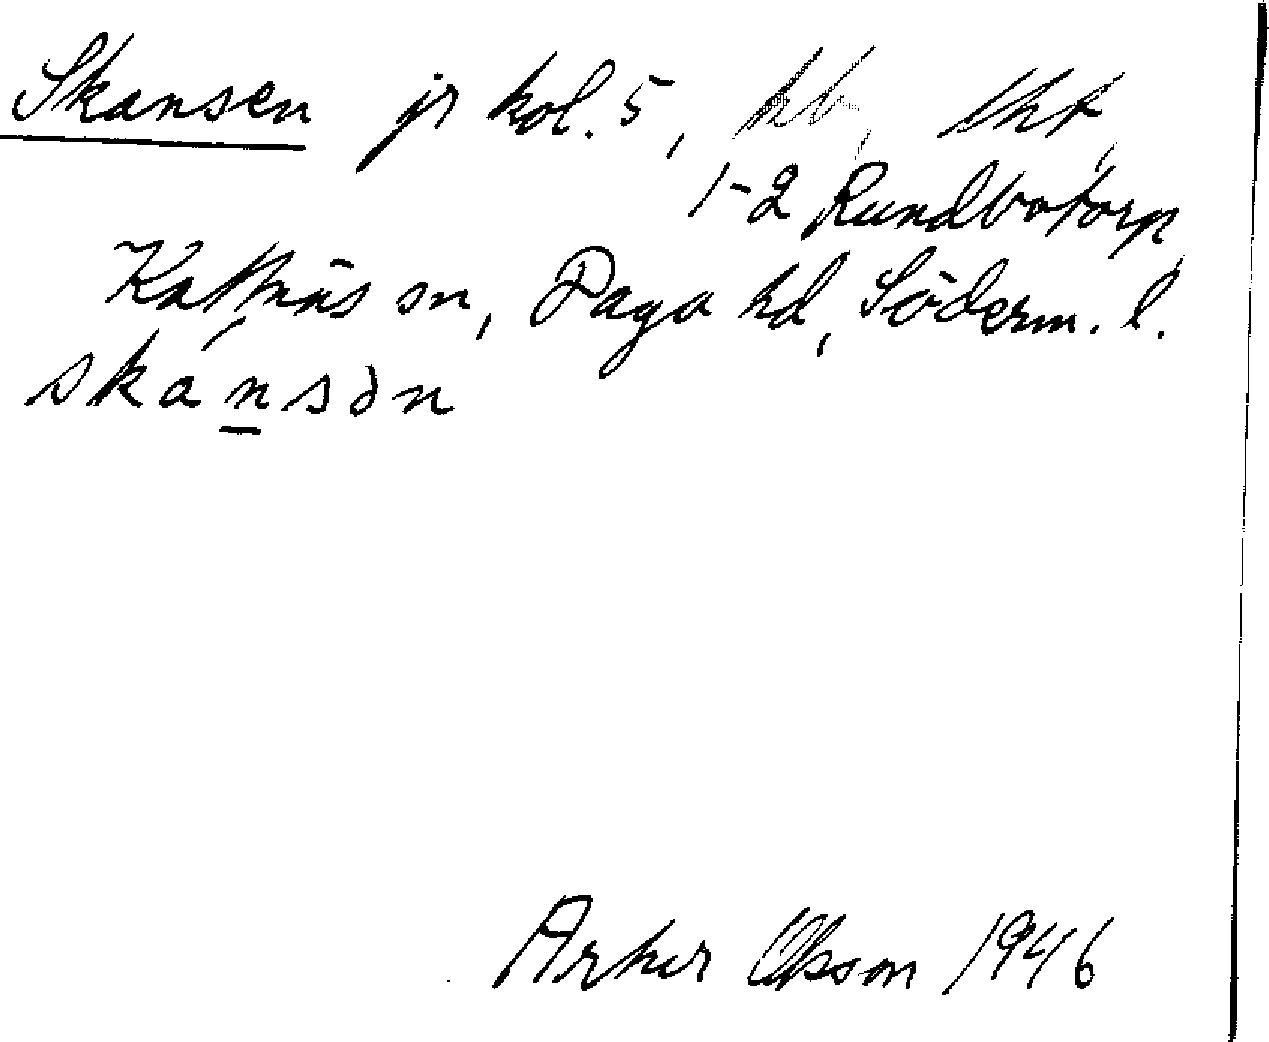 Skansen jr kol. 5, hb, lht,
1-2 Rundbotorp
Kattnäs sn, Daga hd, Söderm. l.
skánsən
Arthur Olsson 1946